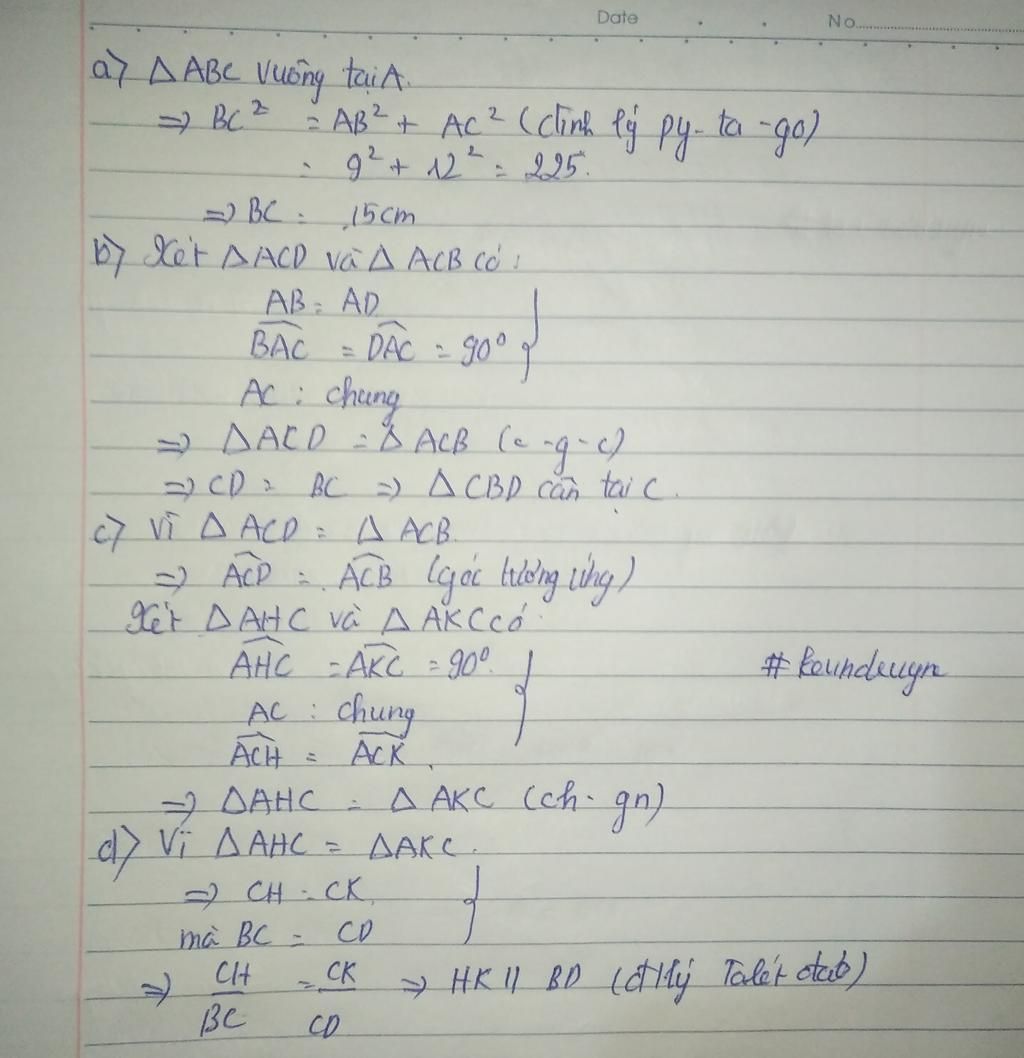 Date No
a) ΔABC vuông tại A.
=> BC² = AB² + AC² (định lý py-ta-go)
= 9² + 12² = 225.
=> BC = 15cm
b) Xét ΔACD và Δ ACB có:
AB = AD
BAC = DAC = 90°
AC : chung
=> ΔACD = Δ ACB (c-g-c)
=> CD = BC => ΔCBD cân tại C.
c) Vì ΔACD = Δ ACB.
=> ACD = ACB (góc tương ứng)
Xét ΔAHC và ΔAKC có
AHC = AKC = 90°.
AC : chung
ACH = ACK.
=> ΔAHC = Δ AKC (ch-gn)
d) Vì ΔAHC = ΔAKC.
=> CH = CK
mà BC = CD
=> CH/BC = CK/CD => HK // BD (đ/lý Talét đảo)